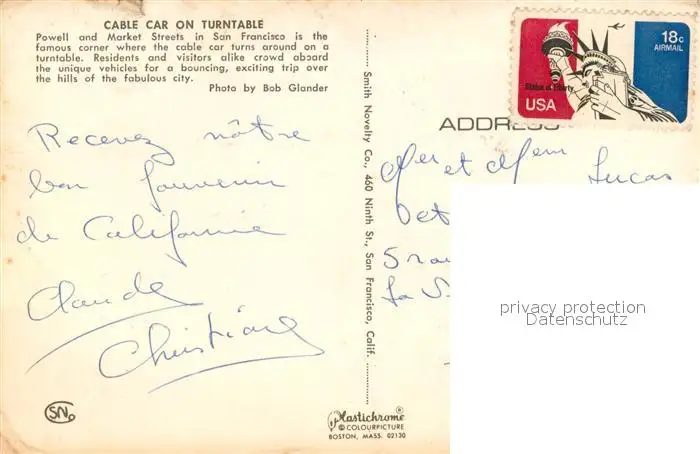 CABLE CAR ON TURNTABLE
Powell and Market Streets in San Francisco is the
famous corner where the cable car turns around on a
turntable. Residents and visitors alike crowd aboard
the unique vehicles for a bouncing, exciting trip over
the hills of the fabulous city.
Photo by Bob Glander
Recevez nôtre
bon souvenir
de Californie
Claude
Christiane
SN
Smith Novelty Co., 460 Ninth St., San Francisco, Calif.
Plastichrome®
© COLOURPICTURE
BOSTON, MASS. 02130
18c
AIRMAIL
Statue of Liberty
USA
ADDRESS
et Lucas
La
privacy protection
Datenschutz